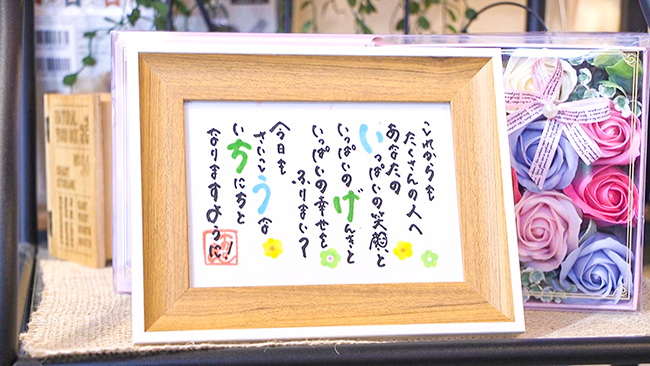 これからも
たくさんの人へ
あなたの
いっぱいの笑顔と
いっぱいのげんきと
いっぱいの幸せを
ふりまいて
今日も
さいこうな
いちにちと
なりますように!